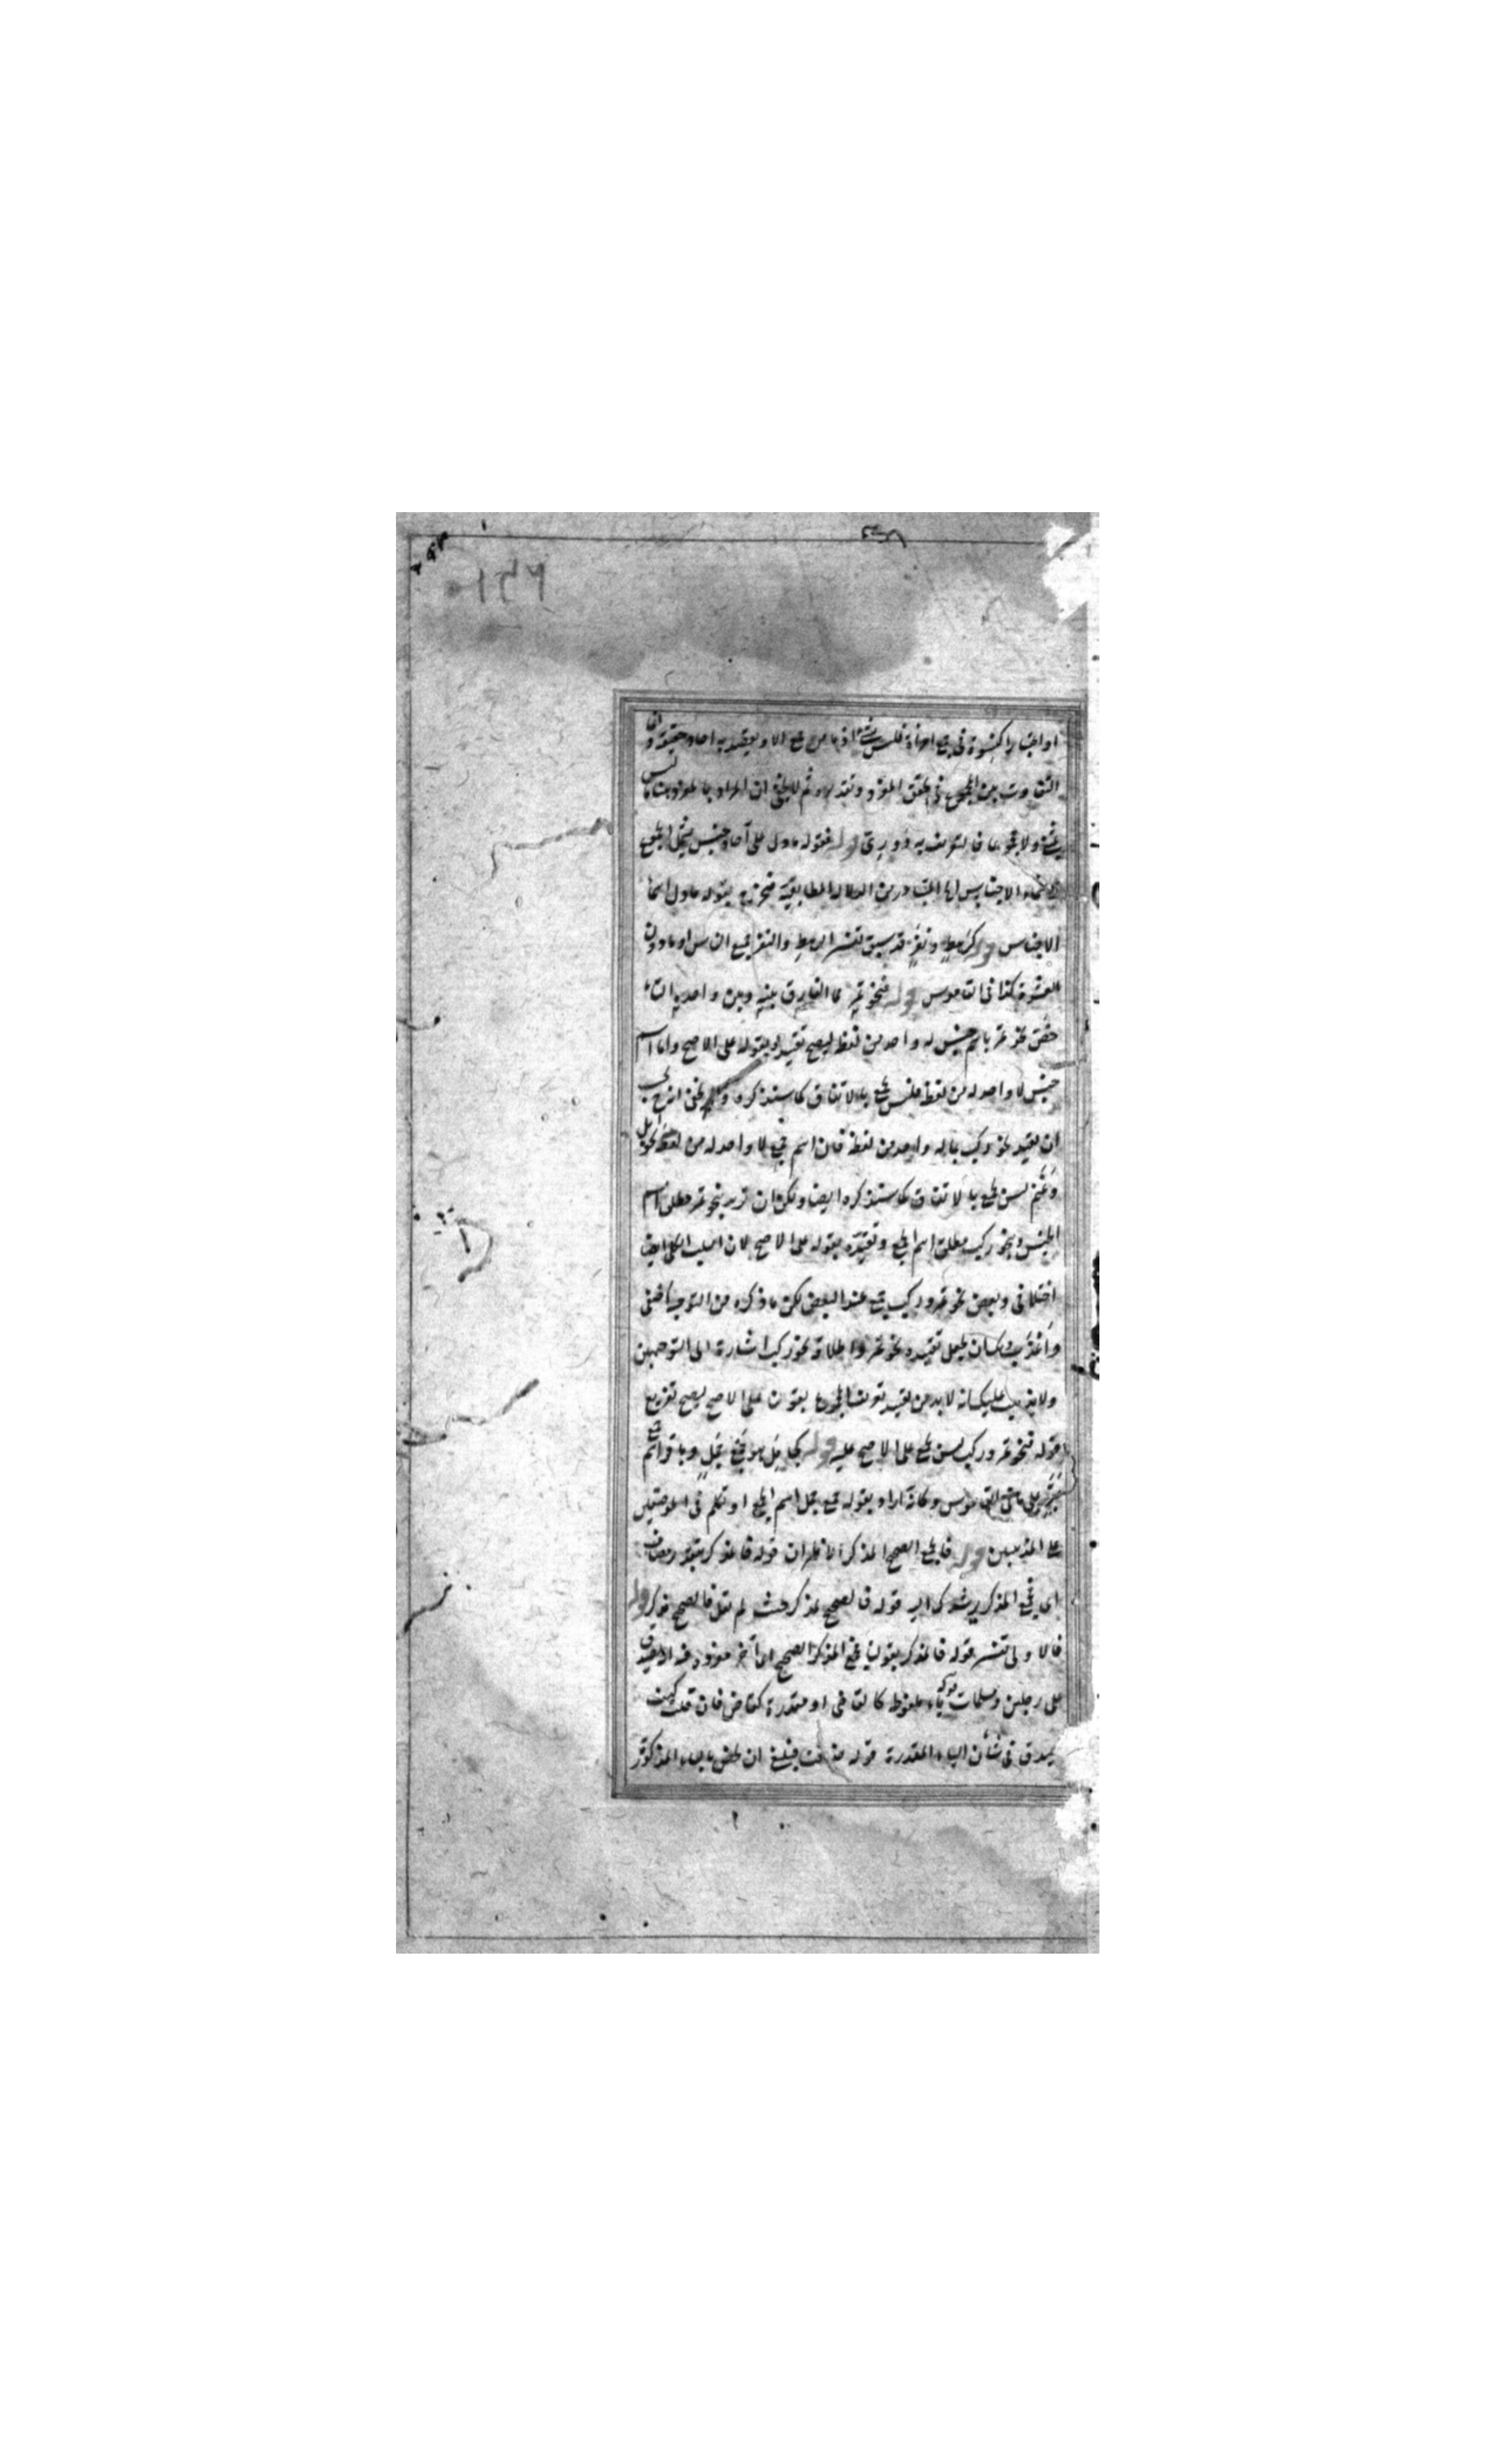 او اعتبارا كنسوة في جمع امرأة فليس بشئ اذ ما من جمع الا ويقصد به احاد حقيقة وانى
التفاوت بين المجموع في المفرد وتقديره ثم لا يخفى ان المراد بالمفرد هنا ما ليس
ولا مجموعا فالتعريف به دورى قوله فقوله ما دل على آحاد جنس يشمل الجمع
واسماء الاجناس اما المتبادر من الدلالة المطابقية فتخرج بقوله ما دل اسماء
الاجناس قوله كرهط ونفر قد سبق تفسير الرهط والنفر جمع الناس او ما دون
العشرة كذا في القاموس قوله فنحو تمر مما الفارق بينه وبين واحده التاء
خص نحو تمر باسم جنس له واحد من لفظه ليصح تقييده بقوله على الاصح واما اسم
جنس لا واحد له من لفظه فليس بجمع بالاتفاق كما ستذكره ولا يخفى انه يجب
ان يقيد نحو ركب بما له واحد من لفظه فان اسم جمع لا واحد له من لفظه نحو ابل
وغنم ليس بجمع بالاتفاق كما ستذكره ايضا ولك ان تريد بنحو تمر مطلق اسم
الجنس وبنحو ركب مطلق اسم الجمع وتقييده بقوله على الاصح لان السلب الكلى ايضا
اختلافى وبعض نحو تمر وركب جمع عند البعض لكن ما ذكره من التوجيه اخفى
واعذب وكان جعل تقييده نحو تمر واطلاق نحو ركب اشارة الى التوجيهين
ولا يذهب عليك انه لا بد من تقييد تعريف المجموع بقوله على الاصح ليصح تفريع
قوله فنحو تمر وركب ليس بجمع على الاصح عليه قوله كجامل هو جمع جمل وباقر اسم جمع
بقر على ما في القاموس وكانه اراد بقوله جمع جمل اسم الجمع او تكلم في الموضعين
على المذهبين قوله فالجمع الصحيح المذكر الظاهر ان قوله فالمذكر بتقدير مضاف
اى جمع المذكر يرشدك اليه قوله فالصحيح لمذكر حيث لم يقل فالصحيح مذكر قوله
فالاولى تفسير قوله فالمذكر بقولنا جمع المذكر الصحيح ما آخر مفرده فيه انه يصدق
على رجلين ومسلمات قوله ياء ملفوظة كالقاضى او مقدرة كقاض فان قلت كيف
يصدق في شان الياء المقدرة قوله حذفت فينبغى ان يخص بالياء المذكورة